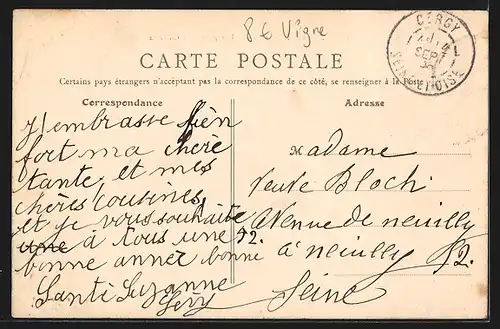 8€ Vigne
CERGY
4
SEPT
SEINE-ET-OISE
CARTE POSTALE
Certains pays étrangers n'acceptant pas la correspondance de ce côté, se renseigner à la Poste
Correspondance
Adresse
J'embrasse bien
fort ma chère
tante et mes
chères cousines,
et je vous souhaite
une à tous une
bonne anner bonne
Santé Suzanne
Levy
Madame
Veuve Bloch
Avenue de neuilly
92.
à neuilly 92.
Seine